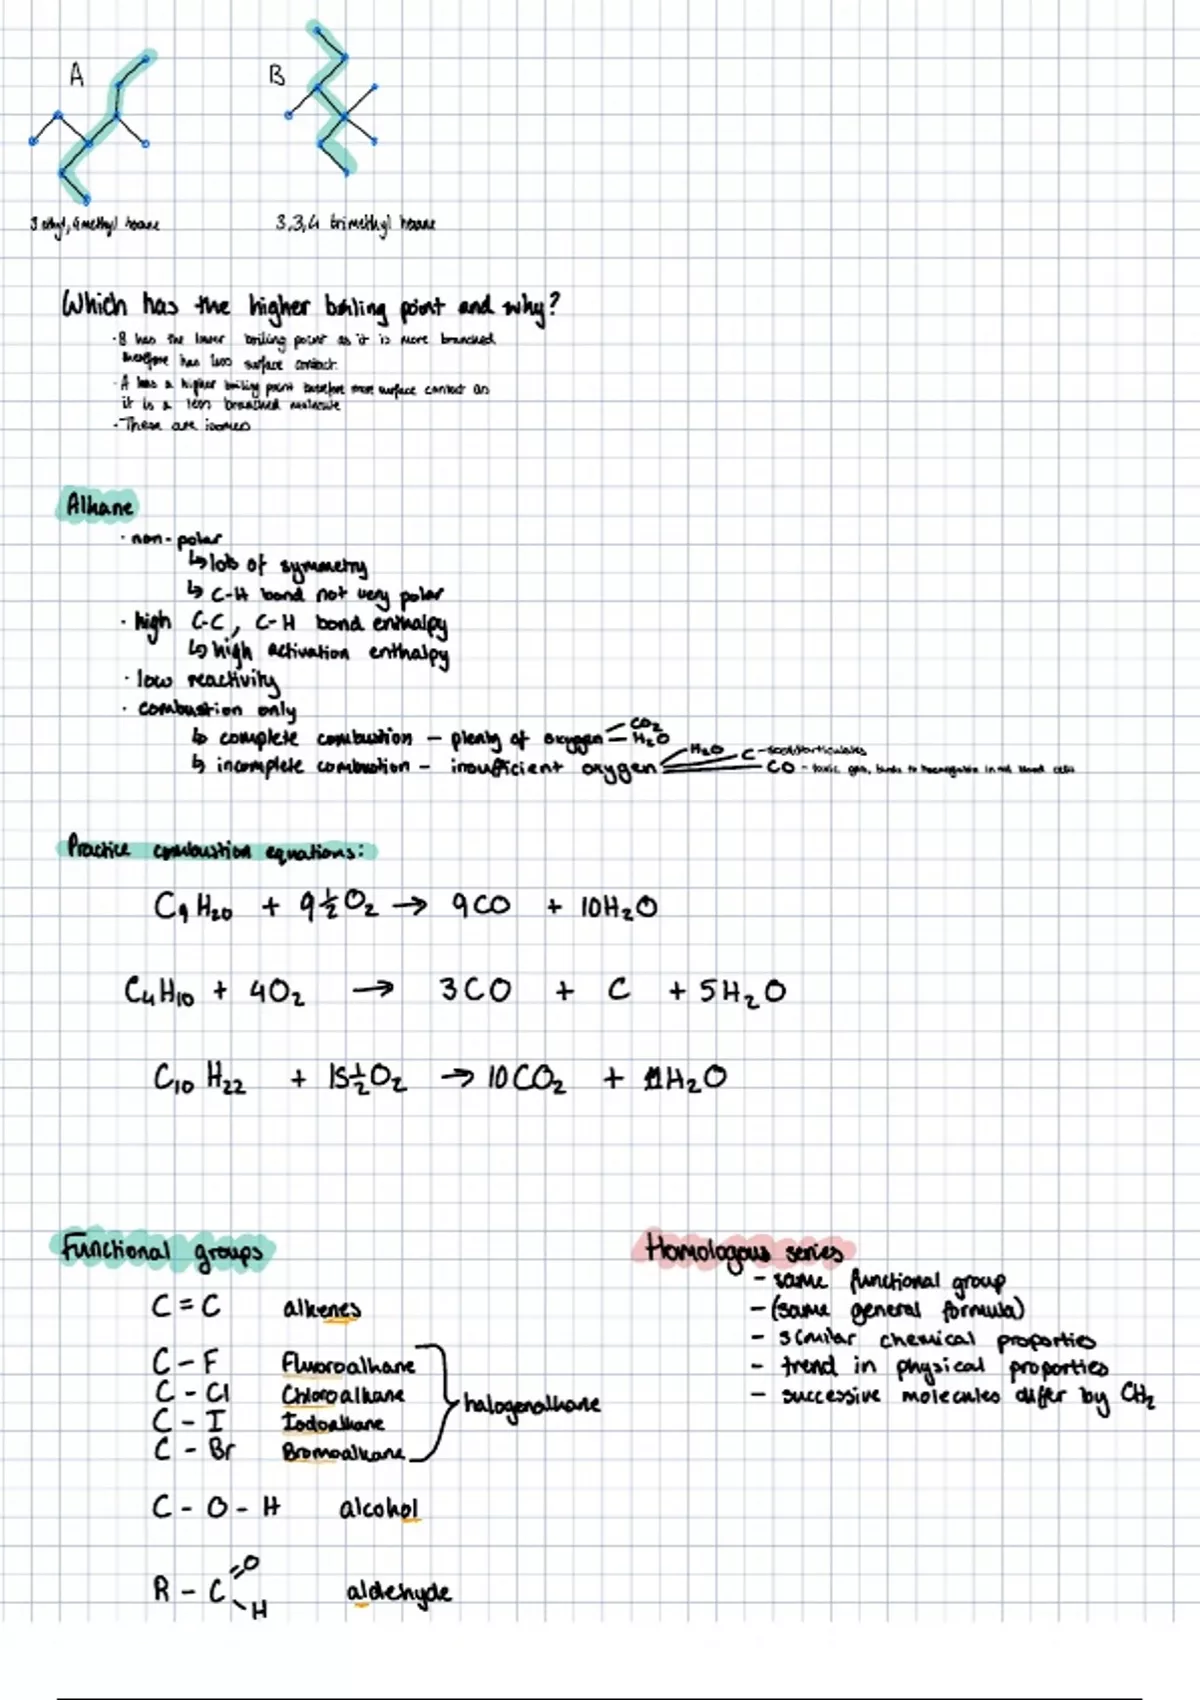 A
B
3 ethyl, 4 methyl hexane
3,3,4 trimethyl hexane
Which has the higher boiling point and why?
· B has the lower boiling point as it is more branched
therefore has less surface contact.
· A has a higher boiling point therefore more surface contact as
it is a less branched molecule
· These are isomers
Alkane
· non-polar
↳ lots of symmetry
↳ C-H bond not very polar
· high C-C, C-H bond enthalpy
↳ high activation enthalpy
· low reactivity
· combustion only
↳ complete combustion – plenty of oxygen – CO₂ – H₂O
↳ incomplete combustion – insufficient oxygen – H₂O C – soot/particulates
CO – toxic gas, binds to haemoglobin in red blood cells
Practice combustion equations:
C₉H₂₀ + 9½O₂ → 9CO + 10H₂O
C₄H₁₀ + 4O₂ → 3CO + C + 5H₂O
C₁₀H₂₂ + 15½O₂ → 10CO₂ + 11H₂O
Functional groups
C=C alkenes
C-F Fluoroalkane
C-Cl Chloroalkane
C-I Iodoalkane
C-Br Bromoalkane
halogenalkane
C-O-H alcohol
R-C=O H aldehyde
Homologous series
- same functional group
- (same general formula)
- similar chemical properties
- trend in physical properties
- successive molecules differ by CH₂